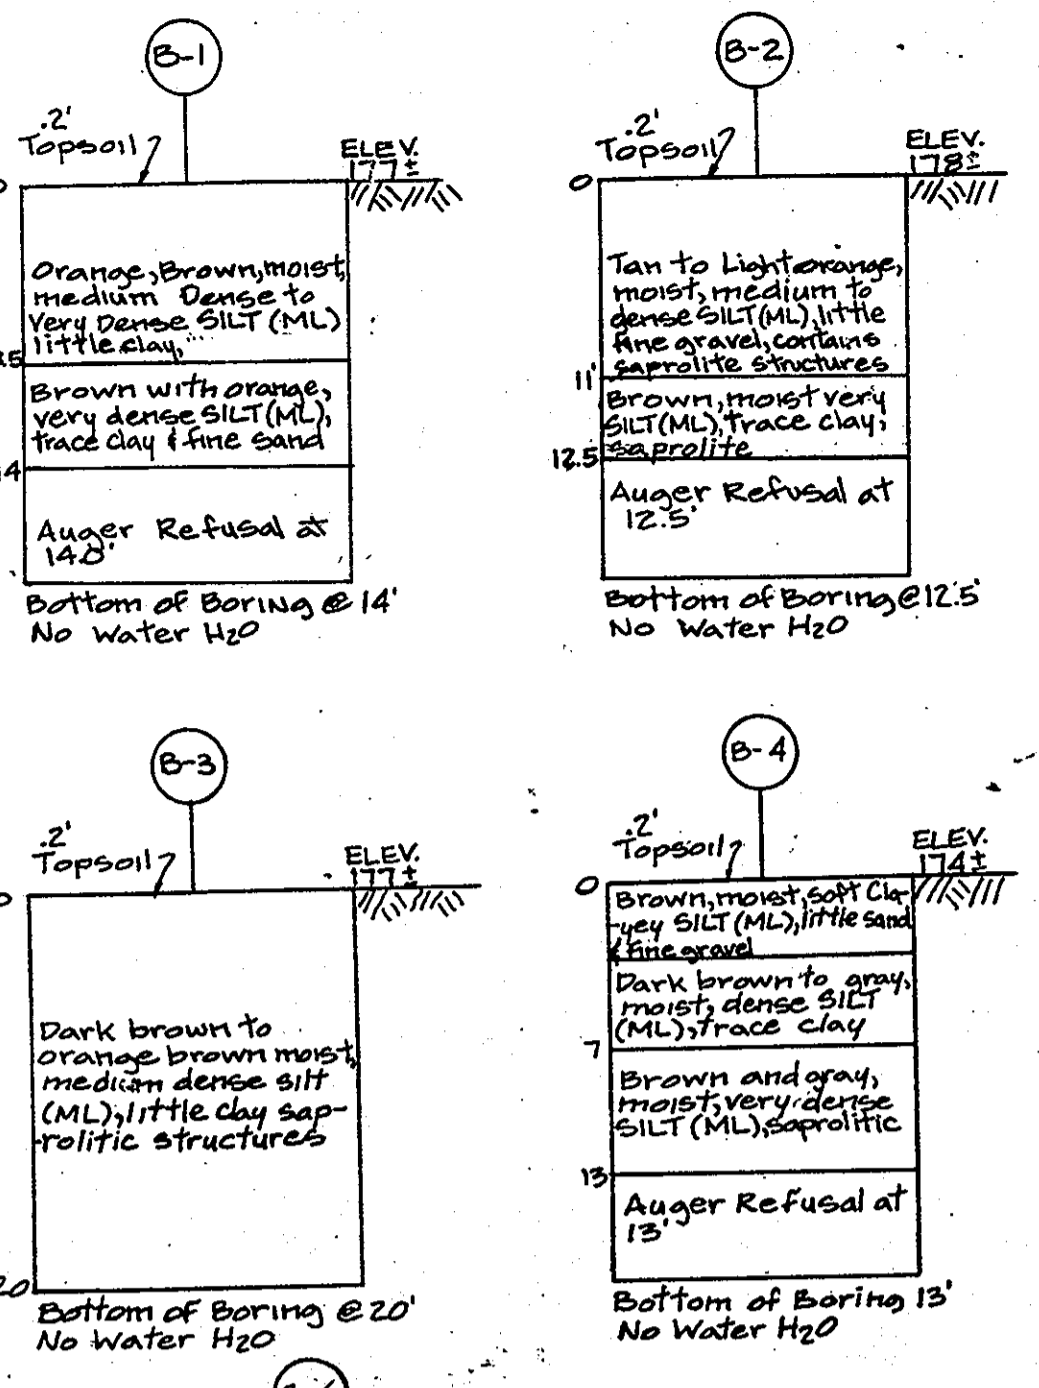 B-1
.2'
Topsoil
ELEV.
177±
Orange, Brown, moist,
medium Dense to
Very Dense SILT (ML)
little clay,
5
Brown with orange,
very dense SILT (ML),
trace clay & fine sand
4
Auger Refusal at
14.0'
Bottom of Boring @ 14'
No Water H2O
B-2
.2'
Topsoil
ELEV.
178±
0
Tan to Light orange,
moist, medium to
dense SILT (ML), little
fine gravel, contains
saprolite structures
11'
Brown, moist very
SILT (ML), trace clay,
saprolite
12.5
Auger Refusal at
12.5'
Bottom of Boring @ 12.5'
No Water H2O
B-3
.2'
Topsoil
ELEV.
177±
0
Dark brown to
orange brown moist,
medium dense silt
(ML), little clay sap-
rolitic structures
20
Bottom of Boring @ 20'
No Water H2O
B-4
.2'
Topsoil
ELEV.
174±
0
Brown, moist, soft Cla-
yey SILT (ML), little sand
& fine gravel
Dark brown to gray,
moist, dense SILT
(ML), trace clay
7
Brown and gray,
moist, very dense
SILT (ML), saprolitic
13
Auger Refusal at
13'
Bottom of Boring 13'
No Water H2O